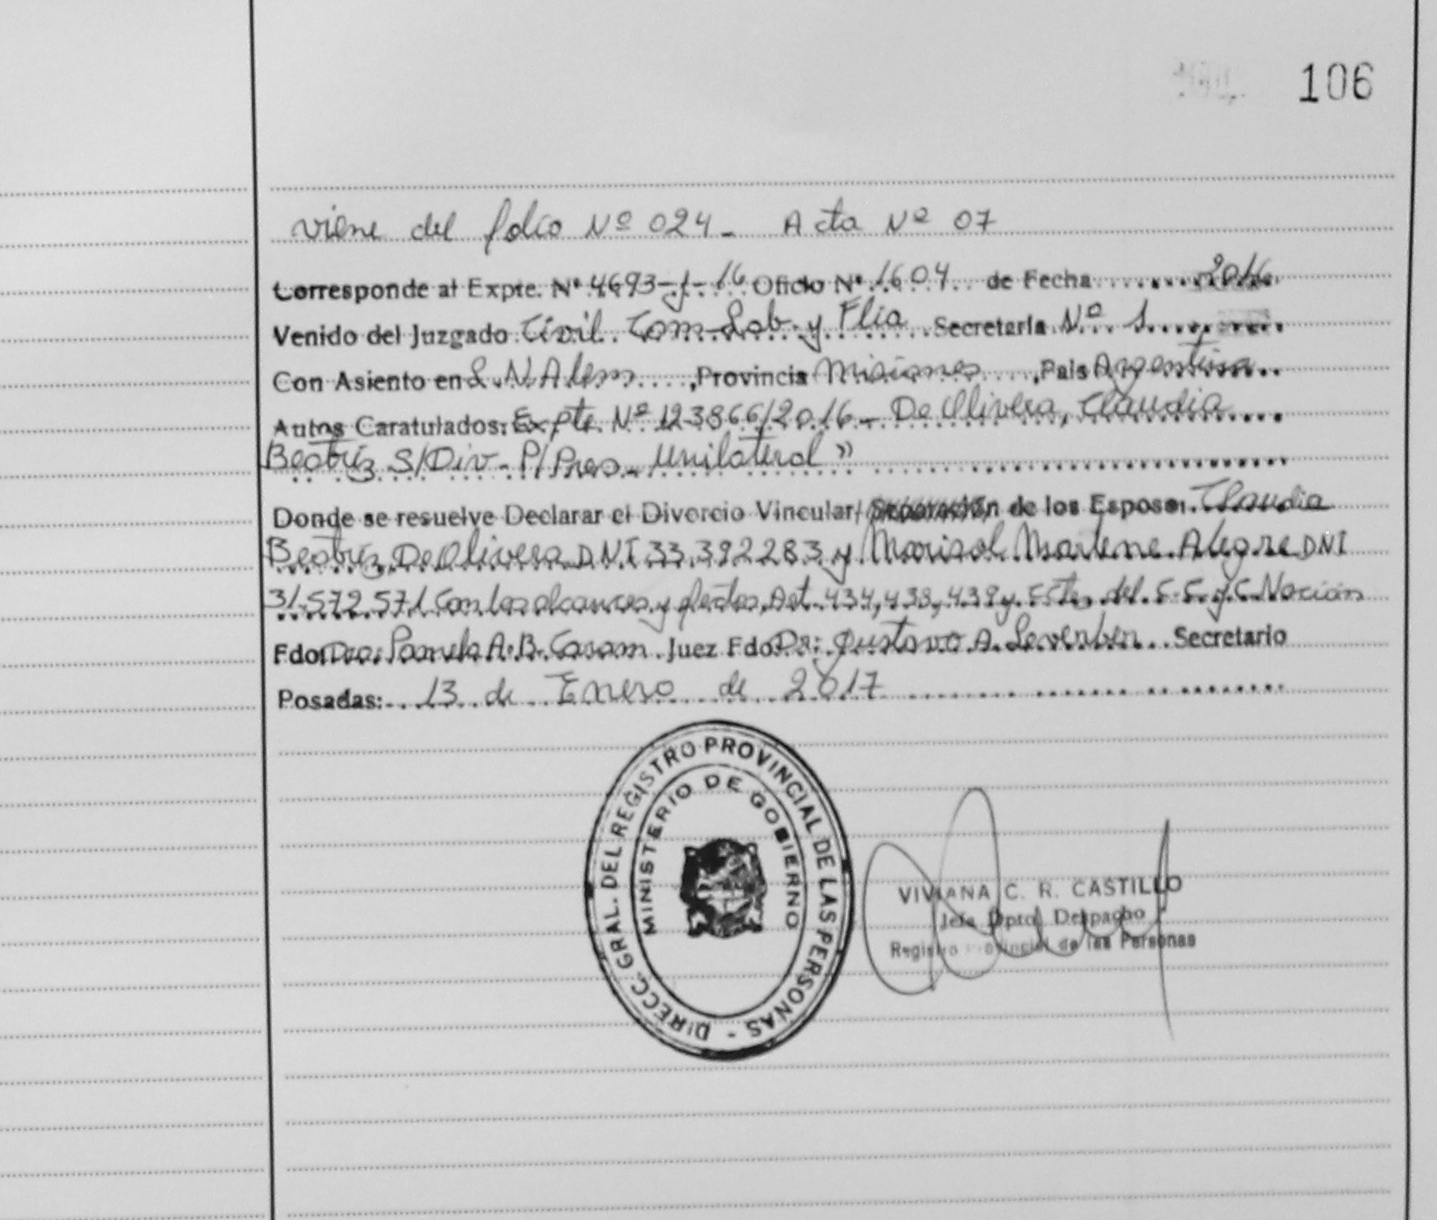 106
viene del folio Nº 024 - Acta Nº 07
Corresponde al Expte. Nº 4693-J-16 Oficio Nº 1604 de Fecha 2016
Venido del Juzgado Civil Com-Lab. y Flia Secretaría Nº 1
Con Asiento en L.N.Alem, Provincia Misiones, País Argentina
Autos Caratulados: Expte. Nº 123866/2016 - De Olivera, Claudia
Beatriz S/Div - P/Pres - Unilateral"
Donde se resuelve Declarar el Divorcio Vincular/ Separación de los Esposos: Claudia
Beatriz De Olivera DNI 33.392283 y Marisol Marlene Alegre DNI
31.572.571 Con los alcances y efectos, Art. 434, 438, 439 y del C.C. y C. Nación
Fdo: Dra. Pamela A.B. Juez Fdo: Dr: Gustavo A. Secretario
Posadas: 13 de Enero de 2017
DIRECC. GRAL. DEL REGISTRO PROVINCIAL DE LAS PERSONAS -
MINISTERIO DE GOBIERNO
VIVIANA C. R. CASTILLO
Jefa Dpto. Despacho
Registro Provincial de las Personas